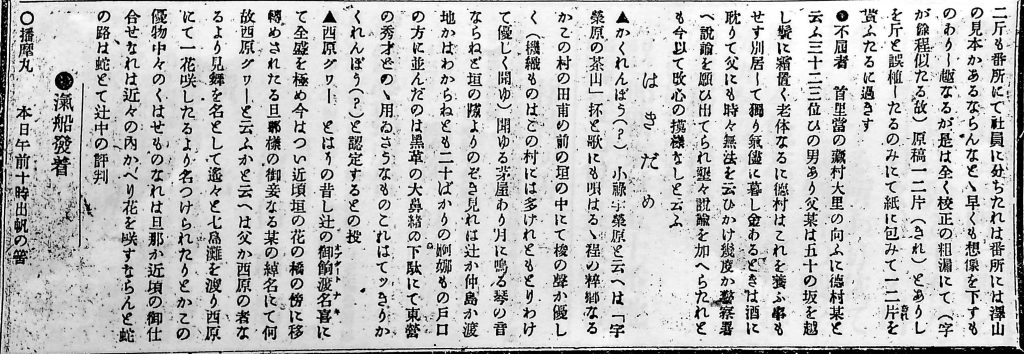 二斤も番所にて社員に分ちたれは番所には澤山
の見本かあるならんなどゝ早くも想像を下すも
のあり一趣なるが是は全く校正の粗漏にて（字
が餘程似たる故）原稿一二片（きれ）とありし
を斤と誤植したるのみにて紙に包みて一二片を
貰ふたるに過きす
●不屆者　首里當の藏村大里の向ふに德村某と
云ふ三十二三位ひの男あり父某は五十の坂を越
し鬢に霜置く老体なるに德村はこれを養ふ事も
せす別居して獨り氣儘に暮し金あるときは酒に
耽りて父にも時々無法を云ひかけ幾度か警察署
へ說諭を願ひ出てられ懇々說諭を加へられたれと
も今以て改心の摸樣なしと云ふ
はきだめ
▲かくれんぼう（？）　小祿字䕃原と云へは「字
䕃原の茶山」抔と歌にも唄はるゝ程の粹鄕なる
かこの村の田甫の前の垣の中にて梭の聲か優し
く（機織ものはこの村には多けれともとりわけ
て優しく聞ゆ）聞ゆる茅屋あり月に鳴る琴の音
ならねと垣の隙よりのぞき見れは辻か仲島か渡
地かはわからねとも二十ばかりの婀娜もの戶口
の方に並んだのは黑革の大鼻緒の下駄にて東營
の秀才どのゝ用ゐさうなものこれはてッきりか
くれんぼう（？）と認定するとの投
▲西原グワー　とはりの昔し辻の御飾渡名喜に
て全盛を極め今はつい近頃垣の花の橋の傍に移
轉めされたる旦那樣の御妾なる某の綽名にて何
故西原グワーと云ふかと云へは父か西原の者な
るより見舞を名として遙々と七島灘を渡り西原
にて一花咲したるより名つけられたりとかこの
優物中々のくはせものなれは旦那か近頃の御仕
合せなれは近々の內かへり花を咲すならんと蛇
の路は蛇とて辻中の評判
●滊船發着
○播磨丸　本日午前十時出帆の筈